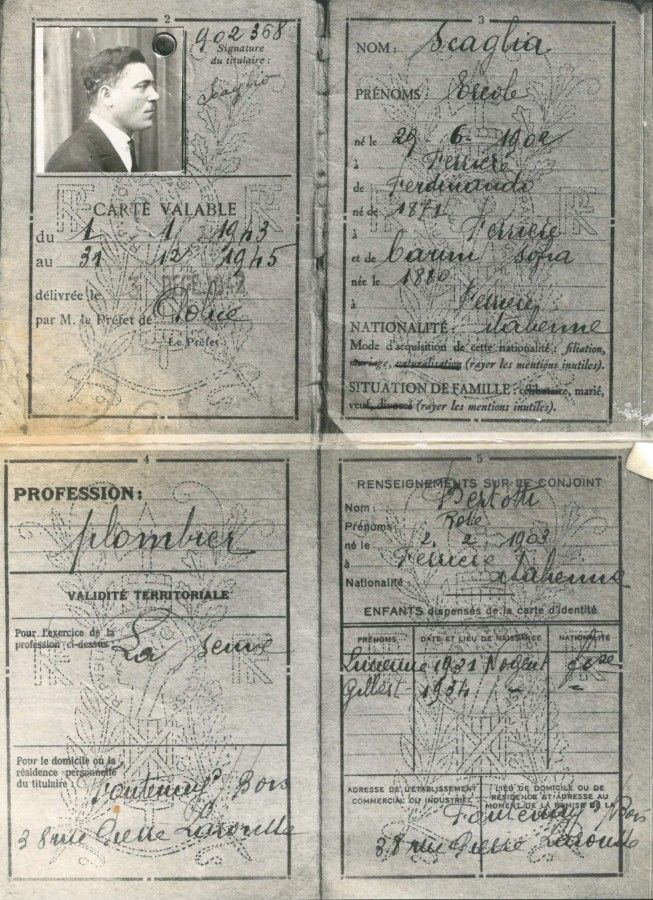 2
902368
Signature
du titulaire :
Scaglia
CARTE VALABLE
du 1 1 1943
au 31 12 1945
délivrée le 31 DÉCE 1942
par M. le Préfet de Police
Le Préfet
3
NOM : Scaglia
PRÉNOMS : Ercole
né le 29-6-1902
à Ferriere
de Ferdinando
né de 1871
à Ferriere
et de Carini Sofia
née le 1880
à Ferriere
NATIONALITÉ : italienne
Mode d'acquisition de cette nationalité : filiation,
mariage, naturalisation (rayer les mentions inutiles).
SITUATION DE FAMILLE : célibataire, marié,
veuf, divorcé (rayer les mentions inutiles).
4
PROFESSION :
plombier
VALIDITÉ TERRITORIALE
Pour l'exercice de la
profession ci-dessus : La Seine
Pour le domicile ou la
résidence personnelle
du titulaire : Fontenay s/ Bois
38 rue Pierre Larousse
5
RENSEIGNEMENTS SUR LE CONJOINT
Nom : Bertotti
Prénoms : Rose
né le 2. 2. 1903
à Ferriere
Nationalité : italienne
ENFANTS dispensés de la carte d'identité
PRÉNOMS DATE ET LIEU DE NAISSANCE NATIONALITÉ
Lucienne 1931 Nogent fse
Gilbert 1934 - -
ADRESSE DE L'ÉTABLISSEMENT
COMMERCIAL OU INDUSTRIEL
LIEU DE DOMICILE OU DE
RÉSIDENCE ET ADRESSE AU
MOMENT DE LA REMISE DE LA
Fontenay s/ Bois
38 rue Pierre Larousse